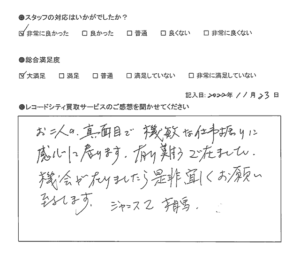 ●スタッフの対応はいかがでしたか？
☑非常に良かった □良かった □普通 □良くない □非常に良くない
●総合満足度
☑大満足 □満足 □普通 □満足していない □非常に満足していない
記入日：2020年 11月 23日
●レコードシティ買取サービスのご感想を聞かせてください
お二人の、真面目で 機敏な仕事振りに
感心に至ります。有り難うございました。
機会が在りましたら是非宜しくお願い
致します。